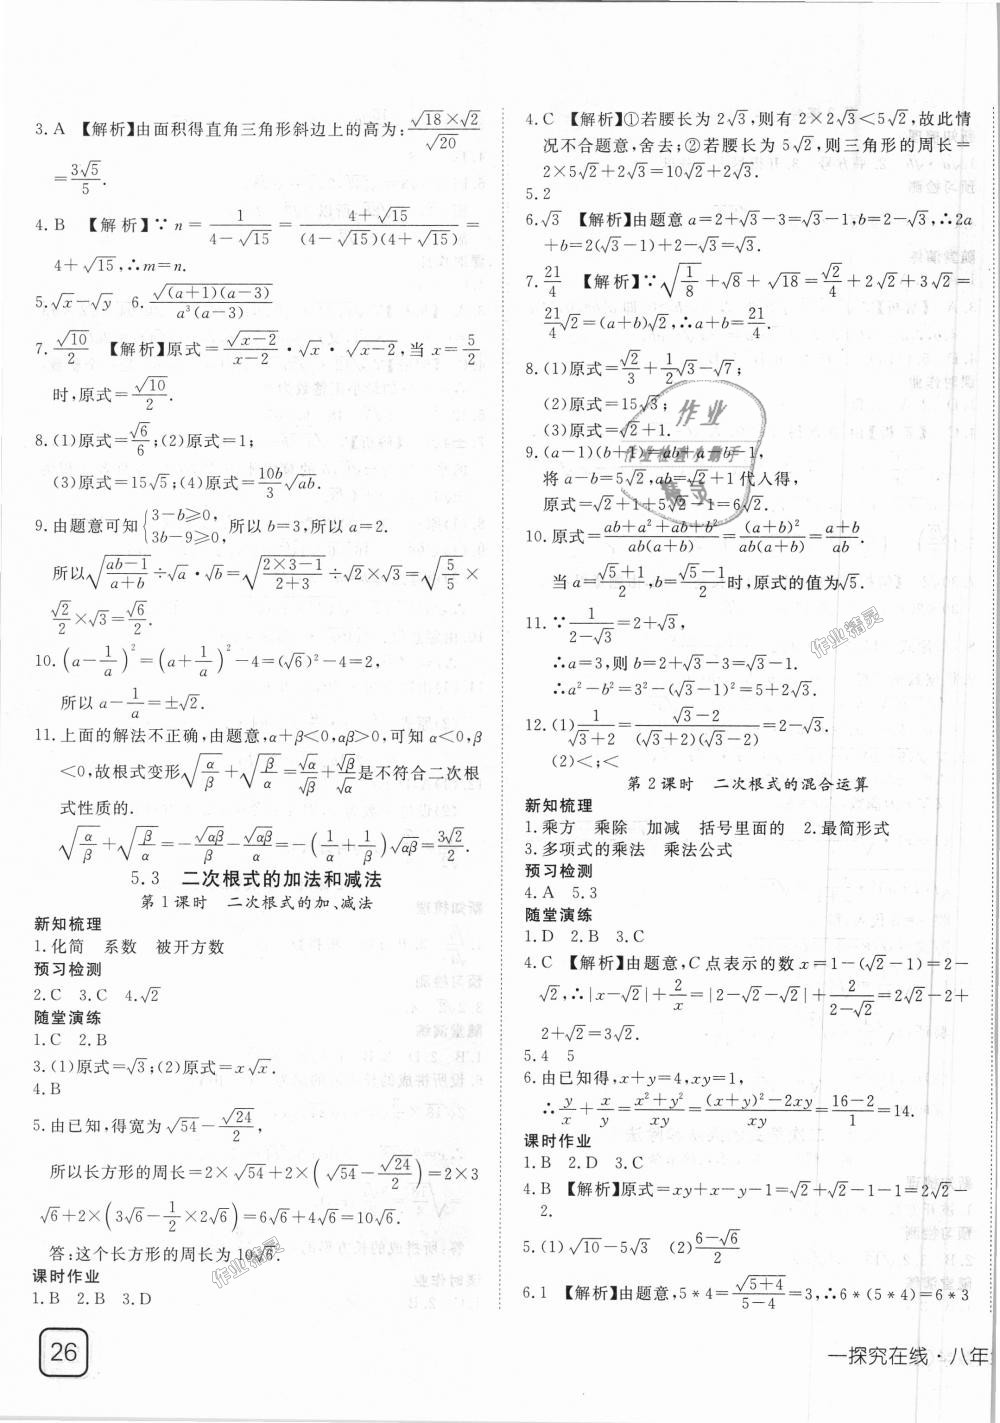 3. A 【解析】由面积得直角三角形斜边上的高为:(√18×√2)/√20
=3√5/5.
4. B 【解析】∵n=1/(4-√15)=(4+√15)/((4-√15)(4+√15))=
4+√15,∴m=n.
5.√x-√y 6.√((a+1)(a-3))/(a³(a-3))
7.√10/2 【解析】原式=√(x-2)/(x-2)·√x·√(x-2),当x=5/2
时,原式=√10/2.
8.(1)原式=√6/6;(2)原式=1;
(3)原式=15√5;(4)原式=10b/3 √ab.
9.由题意可知{3-b≥0, 3b-9≥0, 所以b=3,所以a=2.
所以√((ab-1)/(a+b))÷√a·√b=√((2×3-1)/(2+3))÷√2×√3=√(5/5)×
√2/2×√3=√6/2.
10.(a-1/a)²=(a+1/a)²-4=(√6)²-4=2,
所以a-1/a=±√2.
11.上面的解法不正确,由题意,α+β<0,αβ>0,可知α<0,β
<0,故根式变形√(α/β)+√(β/α)=√α/√β+√β/√α是不符合二次根
式性质的.
√(α/β)+√(β/α)=-√αβ/β-√αβ/α=-(1/α+1/β)√αβ=3√2/2.
5.3 二次根式的加法和减法
第1课时 二次根式的加、减法
新知梳理
1.化简 系数 被开方数
预习检测
2.C 3.C 4.√2
随堂演练
1.C 2.B
3.(1)原式=√3;(2)原式=x√x.
4.B
5.由已知,得宽为√54-√24/2,
所以长方形的周长=2×√54+2×(√54-√24/2)=2×3
√6+2×(3√6-1/2×2√6)=6√6+4√6=10√6.
答:这个长方形的周长为10√6.
课时作业
1.B 2.B 3.D
26
4.C 【解析】①若腰长为2√3,则有2×2√3<5√2,故此情
况不合题意,舍去;②若腰长为5√2,则三角形的周长=
2×5√2+2√3=10√2+2√3.
5.2
6.√3 【解析】由题意a=2+√3-3=√3-1,b=2-√3,∴2a
+b=2(√3-1)+2-√3=√3.
7.21/4 【解析】∵√(1/8)+√8+√18=√2/4+2√2+3√2=
21/4√2=(a+b)√2,∴a+b=21/4.
8.(1)原式=√2/3+1/2√3-√7;
(2)原式=15√3;
(3)原式=√2+1.
9.(a-1)(b+1)=ab+a-b-1,
将a-b=5√2,ab=√2+1代人得,
原式=√2+1+5√2-1=6√2.
10.原式=(ab+a²+ab+b²)/(ab(a+b))=(a+b)²/(ab(a+b))=(a+b)/ab.
当a=(√5+1)/2,b=(√5-1)/2时,原式的值为√5.
11.∵1/(2-√3)=2+√3,
∴a=3,则b=2+√3-3=√3-1.
∴a²-b²=3²-(√3-1)²=5+2√3.
12.(1)1/(√3+2)=(√3-2)/((√3+2)(√3-2))=2-√3.
(2)<;<
第2课时 二次根式的混合运算
新知梳理
1.乘方 乘除 加减 括号里面的 2.最简形式
3.多项式的乘法 乘法公式
预习检测
4.A 5.3
随堂演练
1.D 2.B 3.C
4.C 【解析】由题意,C点表示的数x=1-(√2-1)=2-
√2,∴|x-√2|+2/x=|2-√2-√2|+2/(2-√2)=2√2-2+
2+√2=3√2.
5.4 5
6.由已知得,x+y=4,xy=1,
∴y/x+x/y=(x²+y²)/xy=((x+y)²-2xy)/xy=(16-2)/1=14.
课时作业
1.B 2.D 3.C
4.B 【解析】原式=xy+x-y-1=√2+√2-1-1=2√2-
2.
5.(1)√10-5√3 (2)(6-√6)/2
6.1 【解析】由题意,5*4=√(5+4)/(5-4)=3,∴6*(5*4)=6*3
一探究在线·八年
作业
作业检查小助手
精灵
作业精灵
作业精灵